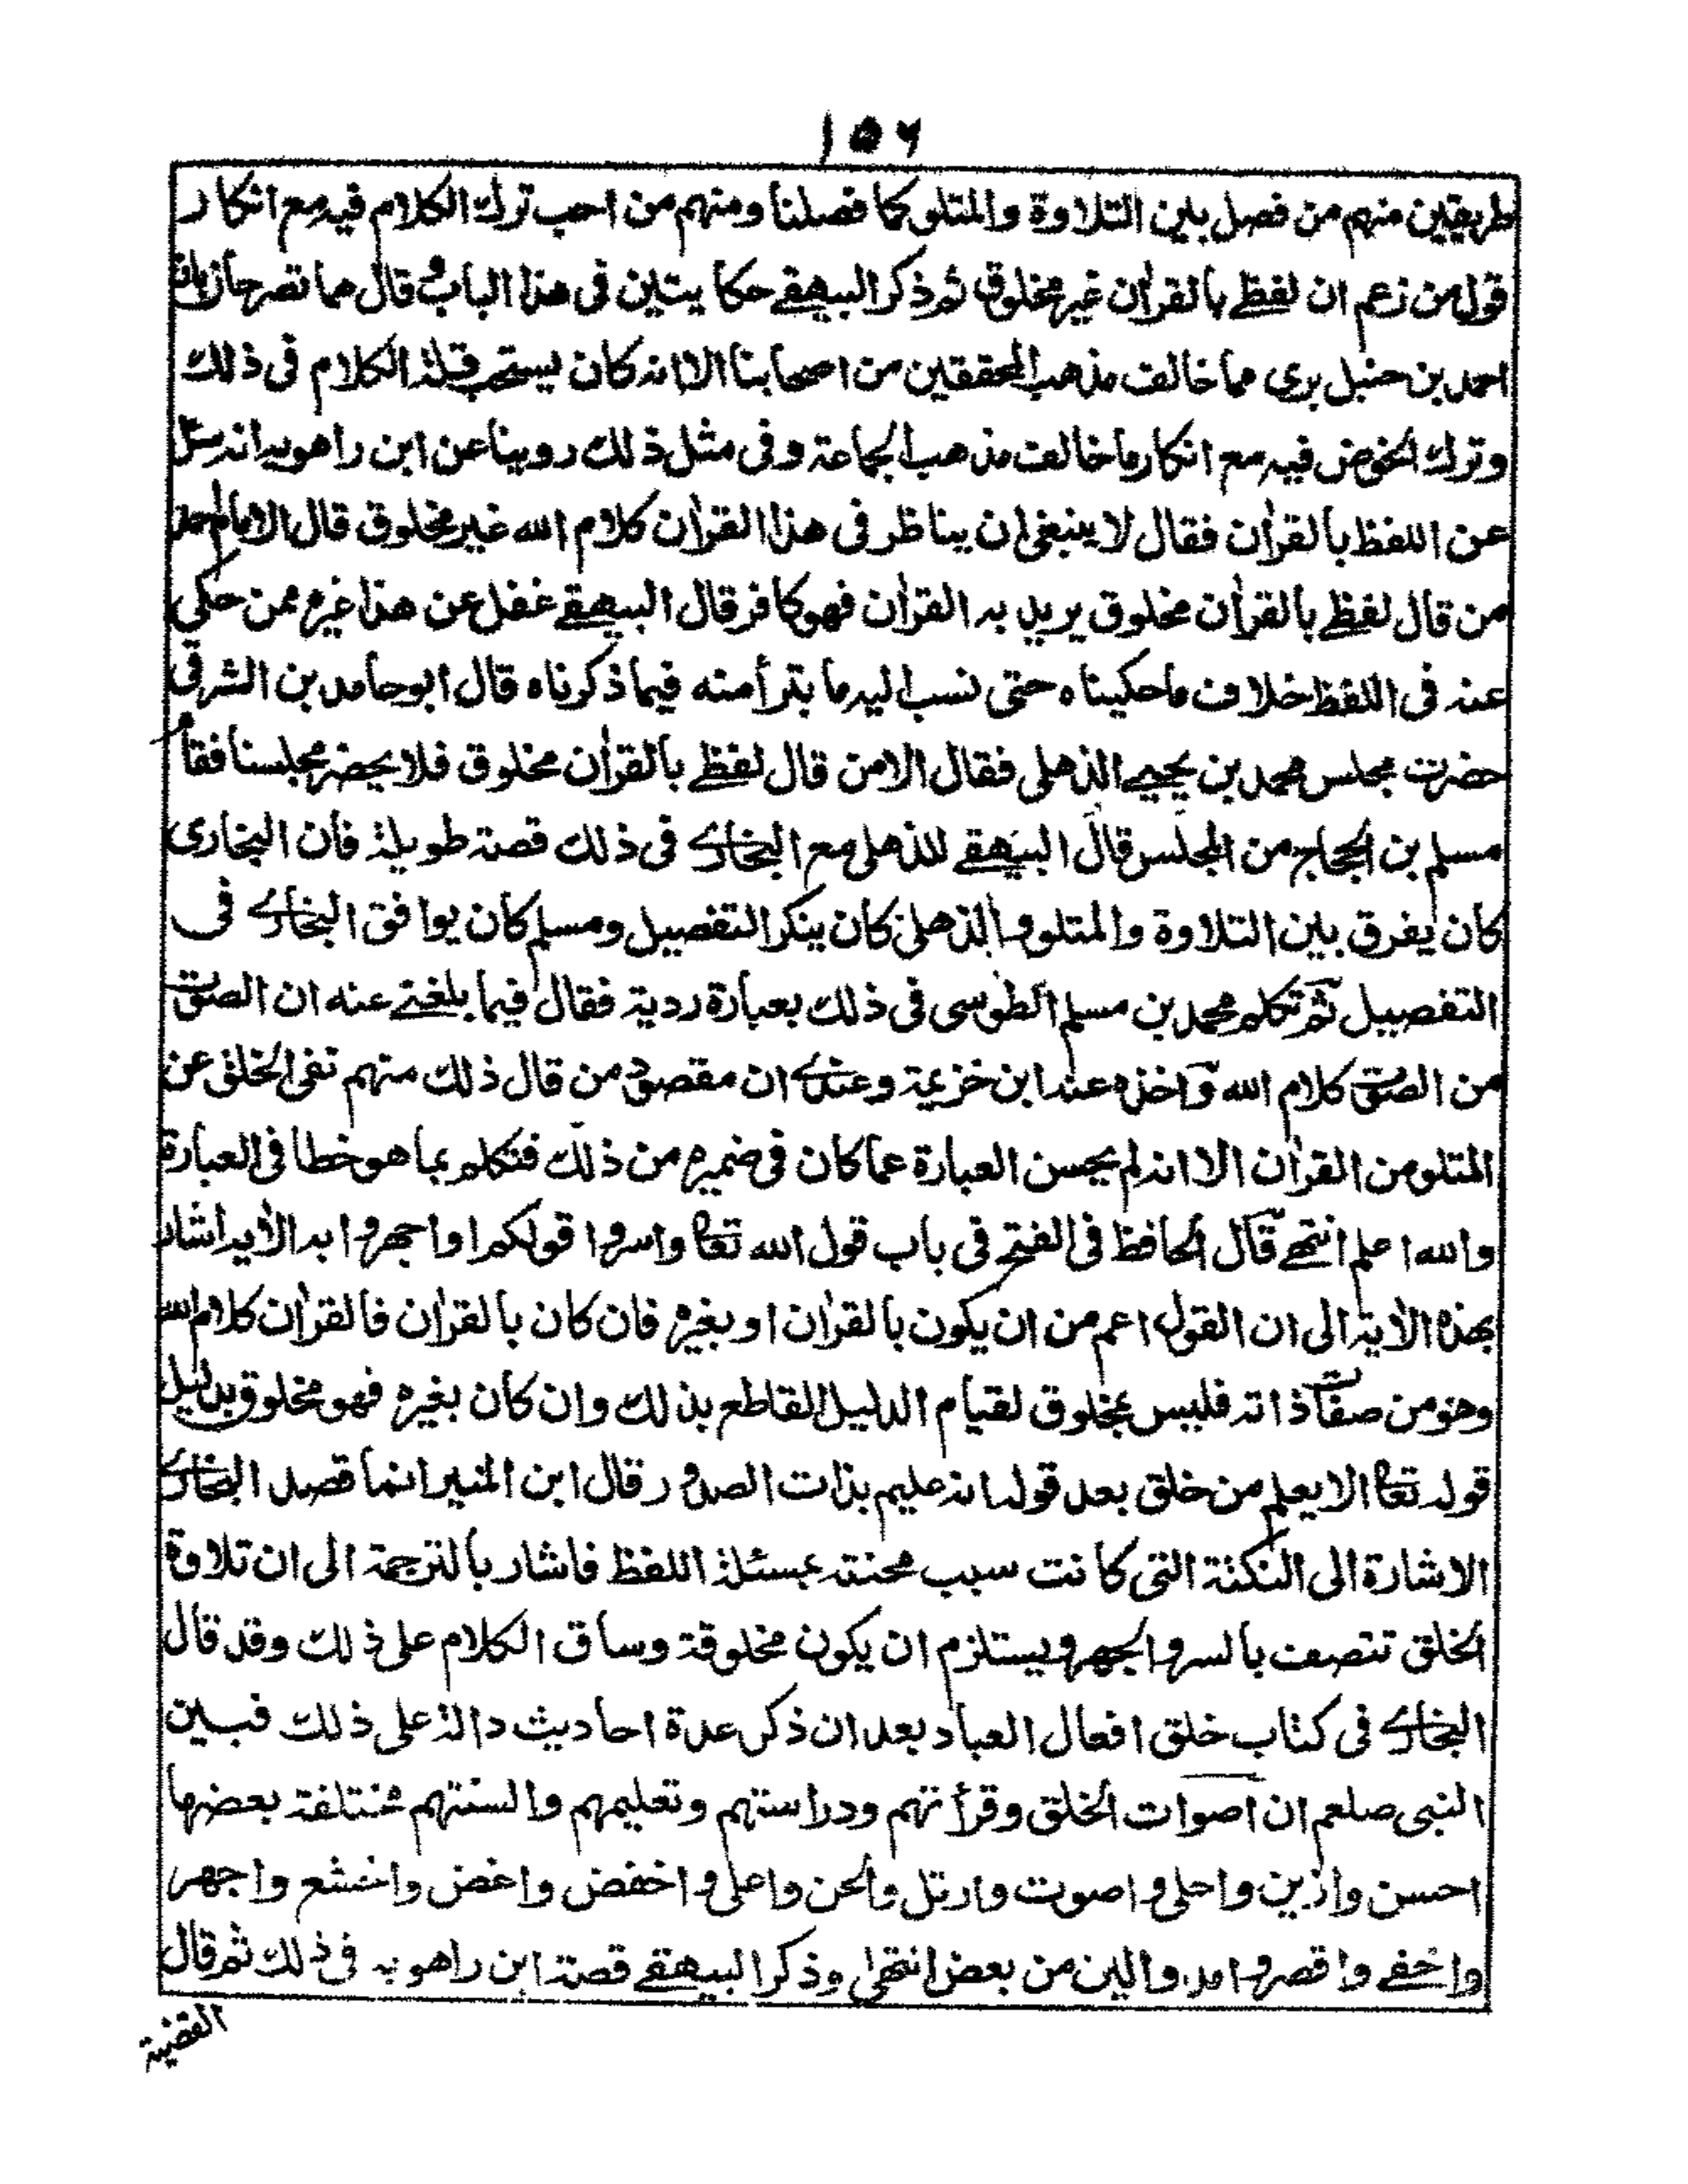 ١٥٦
طريقين منهم من فصل بين التلاوة والمتلو كما فصلنا ومنهم من احب ترك الكلام فيه مع انكار
قول من زعم ان لفظے بالقراٰن غير مخلوق ثم ذكر البيهقے حكايتين فى هذا الباب و قال هما تصرحان بان
احمد بن حنبل برى مما خالف مذهب المحققين من اصحابنا الا انه كان يستحب قلة الكلام فى ذلك
وترك الخوض فيه مع انكار ما خالف مذهب الجماعة وفى مثل ذلك روينا عن ابن راهويه انه سئل
عن اللفظ بالقراٰن فقال لا ينبغى ان يناظر فى هذا القراٰن كلام الله غير مخلوق قال الامام احمد
من قال لفظے بالقراٰن مخلوق يريد به القراٰن فهو كافر قال البيهقے غفل عن هذا غيره ممن حكى
عنه فى اللفظ خلاف ما حكيناه حتى نسب اليه ما يتبرأ منه فيما ذكرناه قال ابو حامد بن الشرقى
حضرت مجلس محمد بن يحيے الذهلى فقال الا من قال لفظے بالقراٰن مخلوق فلا يحضر مجلسنا فقام
مسلم بن الحجاج من المجلس قال البيهقے للذهلى مع البخارے فى ذلك قصة طويلة فان البخارى
كان يفرق بين التلاوة والمتلو والذهلى كان ينكر التفصيل ومسلم كان يوافق البخارے فى
التفصيل ثم تكلم محمد بن مسلم الطوسى فى ذلك بعبارة ردية فقال فيما بلغنے عنه ان الصوت
من الصوت كلام الله و اخذه عند ابن خزيمة وعندے ان مقصود من قال ذلك منهم نفى الخلق عن
المتلو من القراٰن الا انه لم يحسن العبارة عما كان فى ضميره من ذلك فتكلم بما هو خطا فى العبارة
والله اعلم انتهے قال الحافظ فى الفتح فى باب قول الله تعا واسروا قولكم او اجهروا به الاٰية اشار
بهذه الاٰية الى ان القول اعم من ان يكون بالقراٰن او بغيره فان كان بالقراٰن فالقراٰن كلام الله
وهو من صفات ذاته فليس بمخلوق لقيام الدليل القاطع بذلك وان كان بغيره فهو مخلوق بدليل
قوله تعا الا يعلم من خلق بعد قوله انه عليم بذات الصدور قال ابن المنير انما قصد البخارے
الاشارة الى النكتة التى كانت سبب محنته بمسئلة اللفظ فاشار بالترجمة الى ان تلاوة
الخلق تتصف بالسر والجهر ويستلزم ان يكون مخلوقة وساق الكلام على ذلك وقد قال
البخارے فى كتاب خلق افعال العباد بعد ان ذكر عدة احاديث دالة على ذلك فبين
النبى صلعم ان اصوات الخلق وقرأتهم ودراستهم وتعليمهم والسنتهم مختلفة بعضها
احسن وازين واحلى و اصوت وارتل والحن واعلى و اخفض واغض واخشع واجهر
واخفے واقصر و امد والين من بعض انتهٰى وذكر البيهقے قصة ابن راهويه فى ذلك ثم قال
القضية